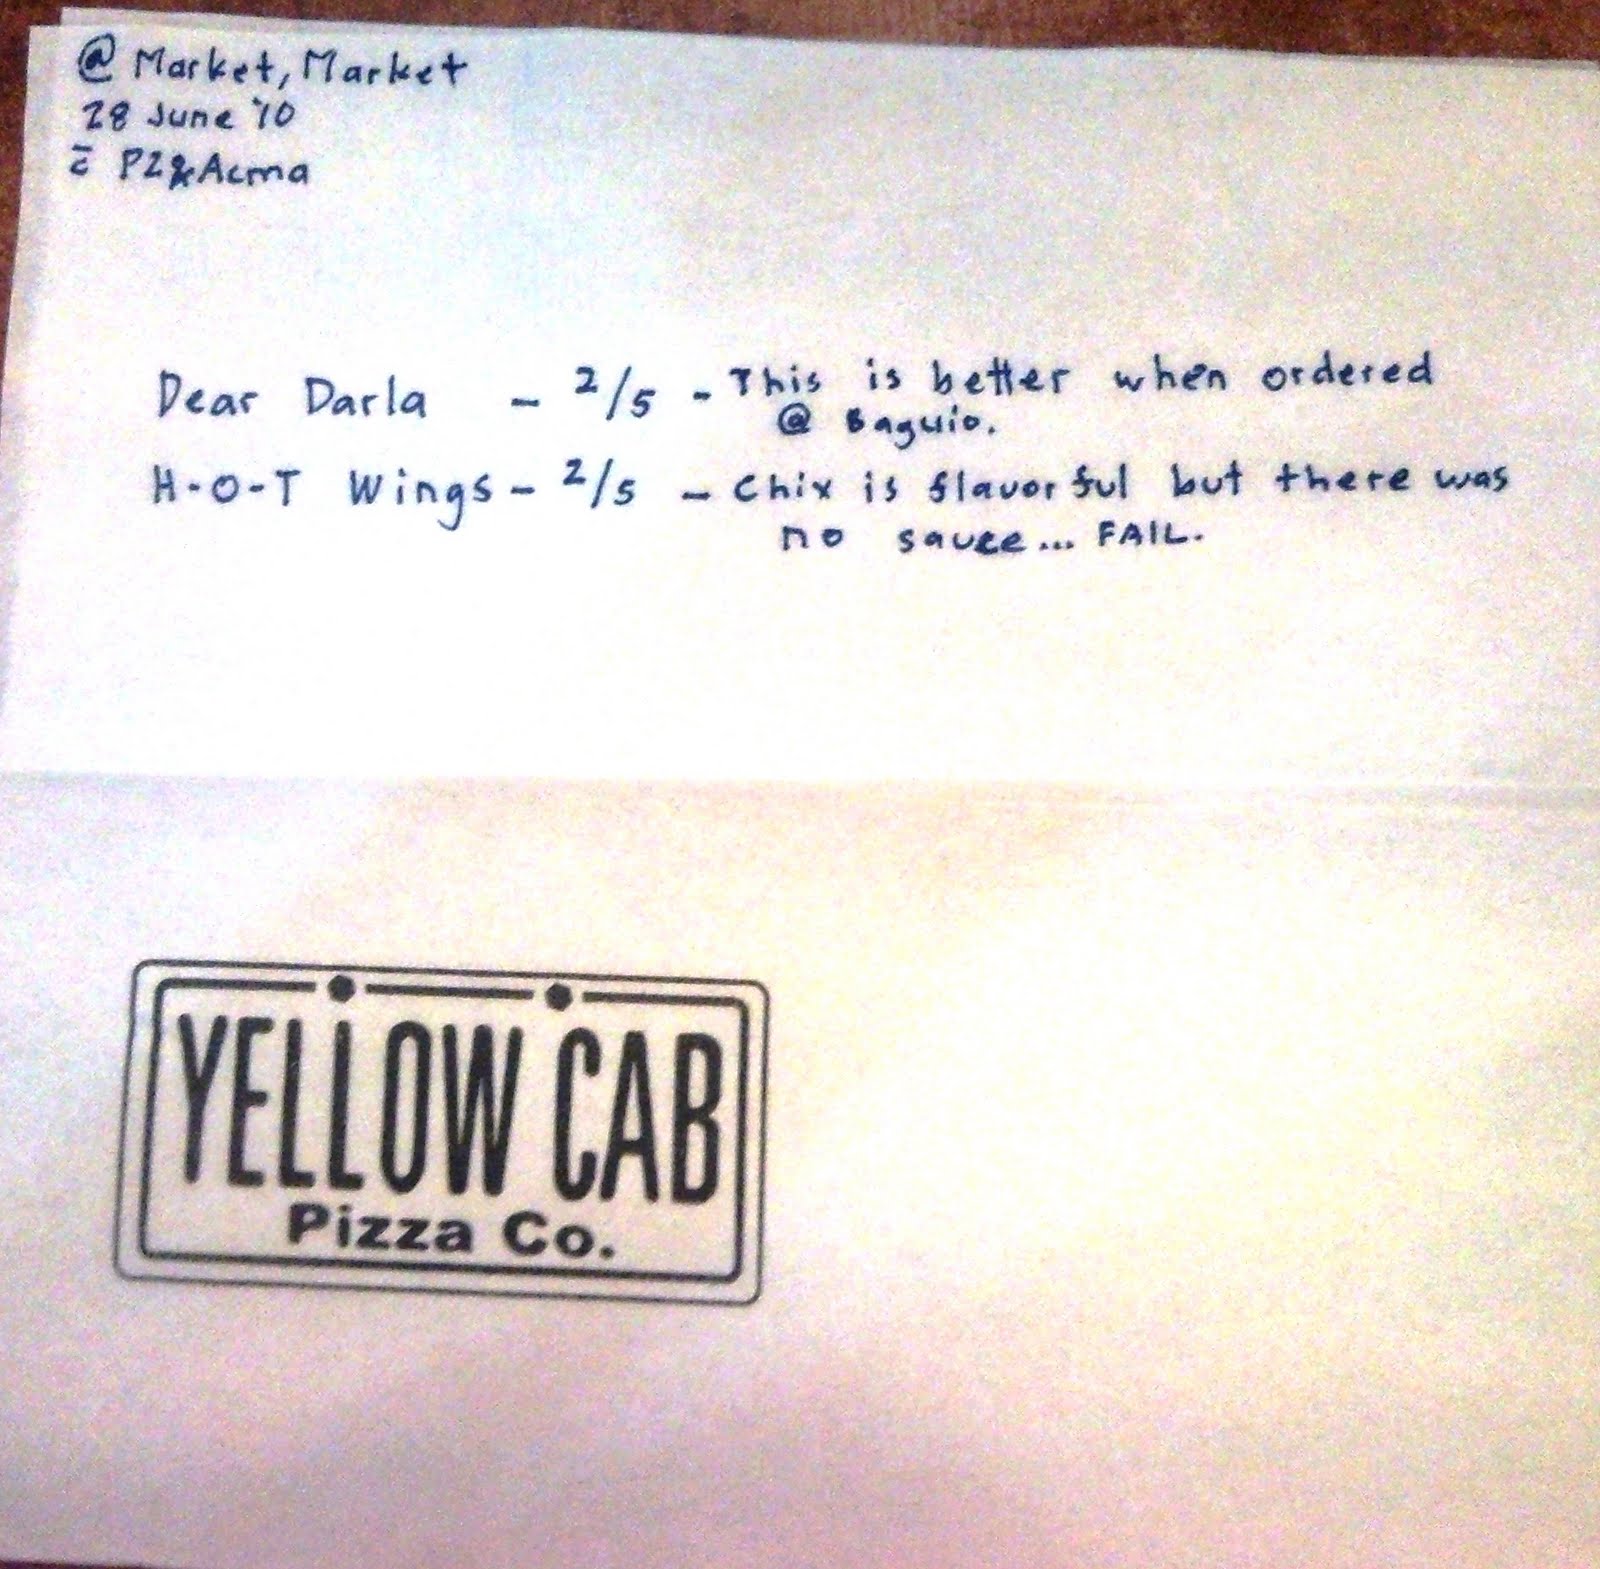 @ Market, Market
28 June '10
c̄ PZ & Acma
Dear Darla - 2/5 - This is better when ordered
@ Baguio.
H-O-T Wings - 2/5 - Chix is flavorful but there was
no sauce... FAIL.
YELLOW CAB
Pizza Co.